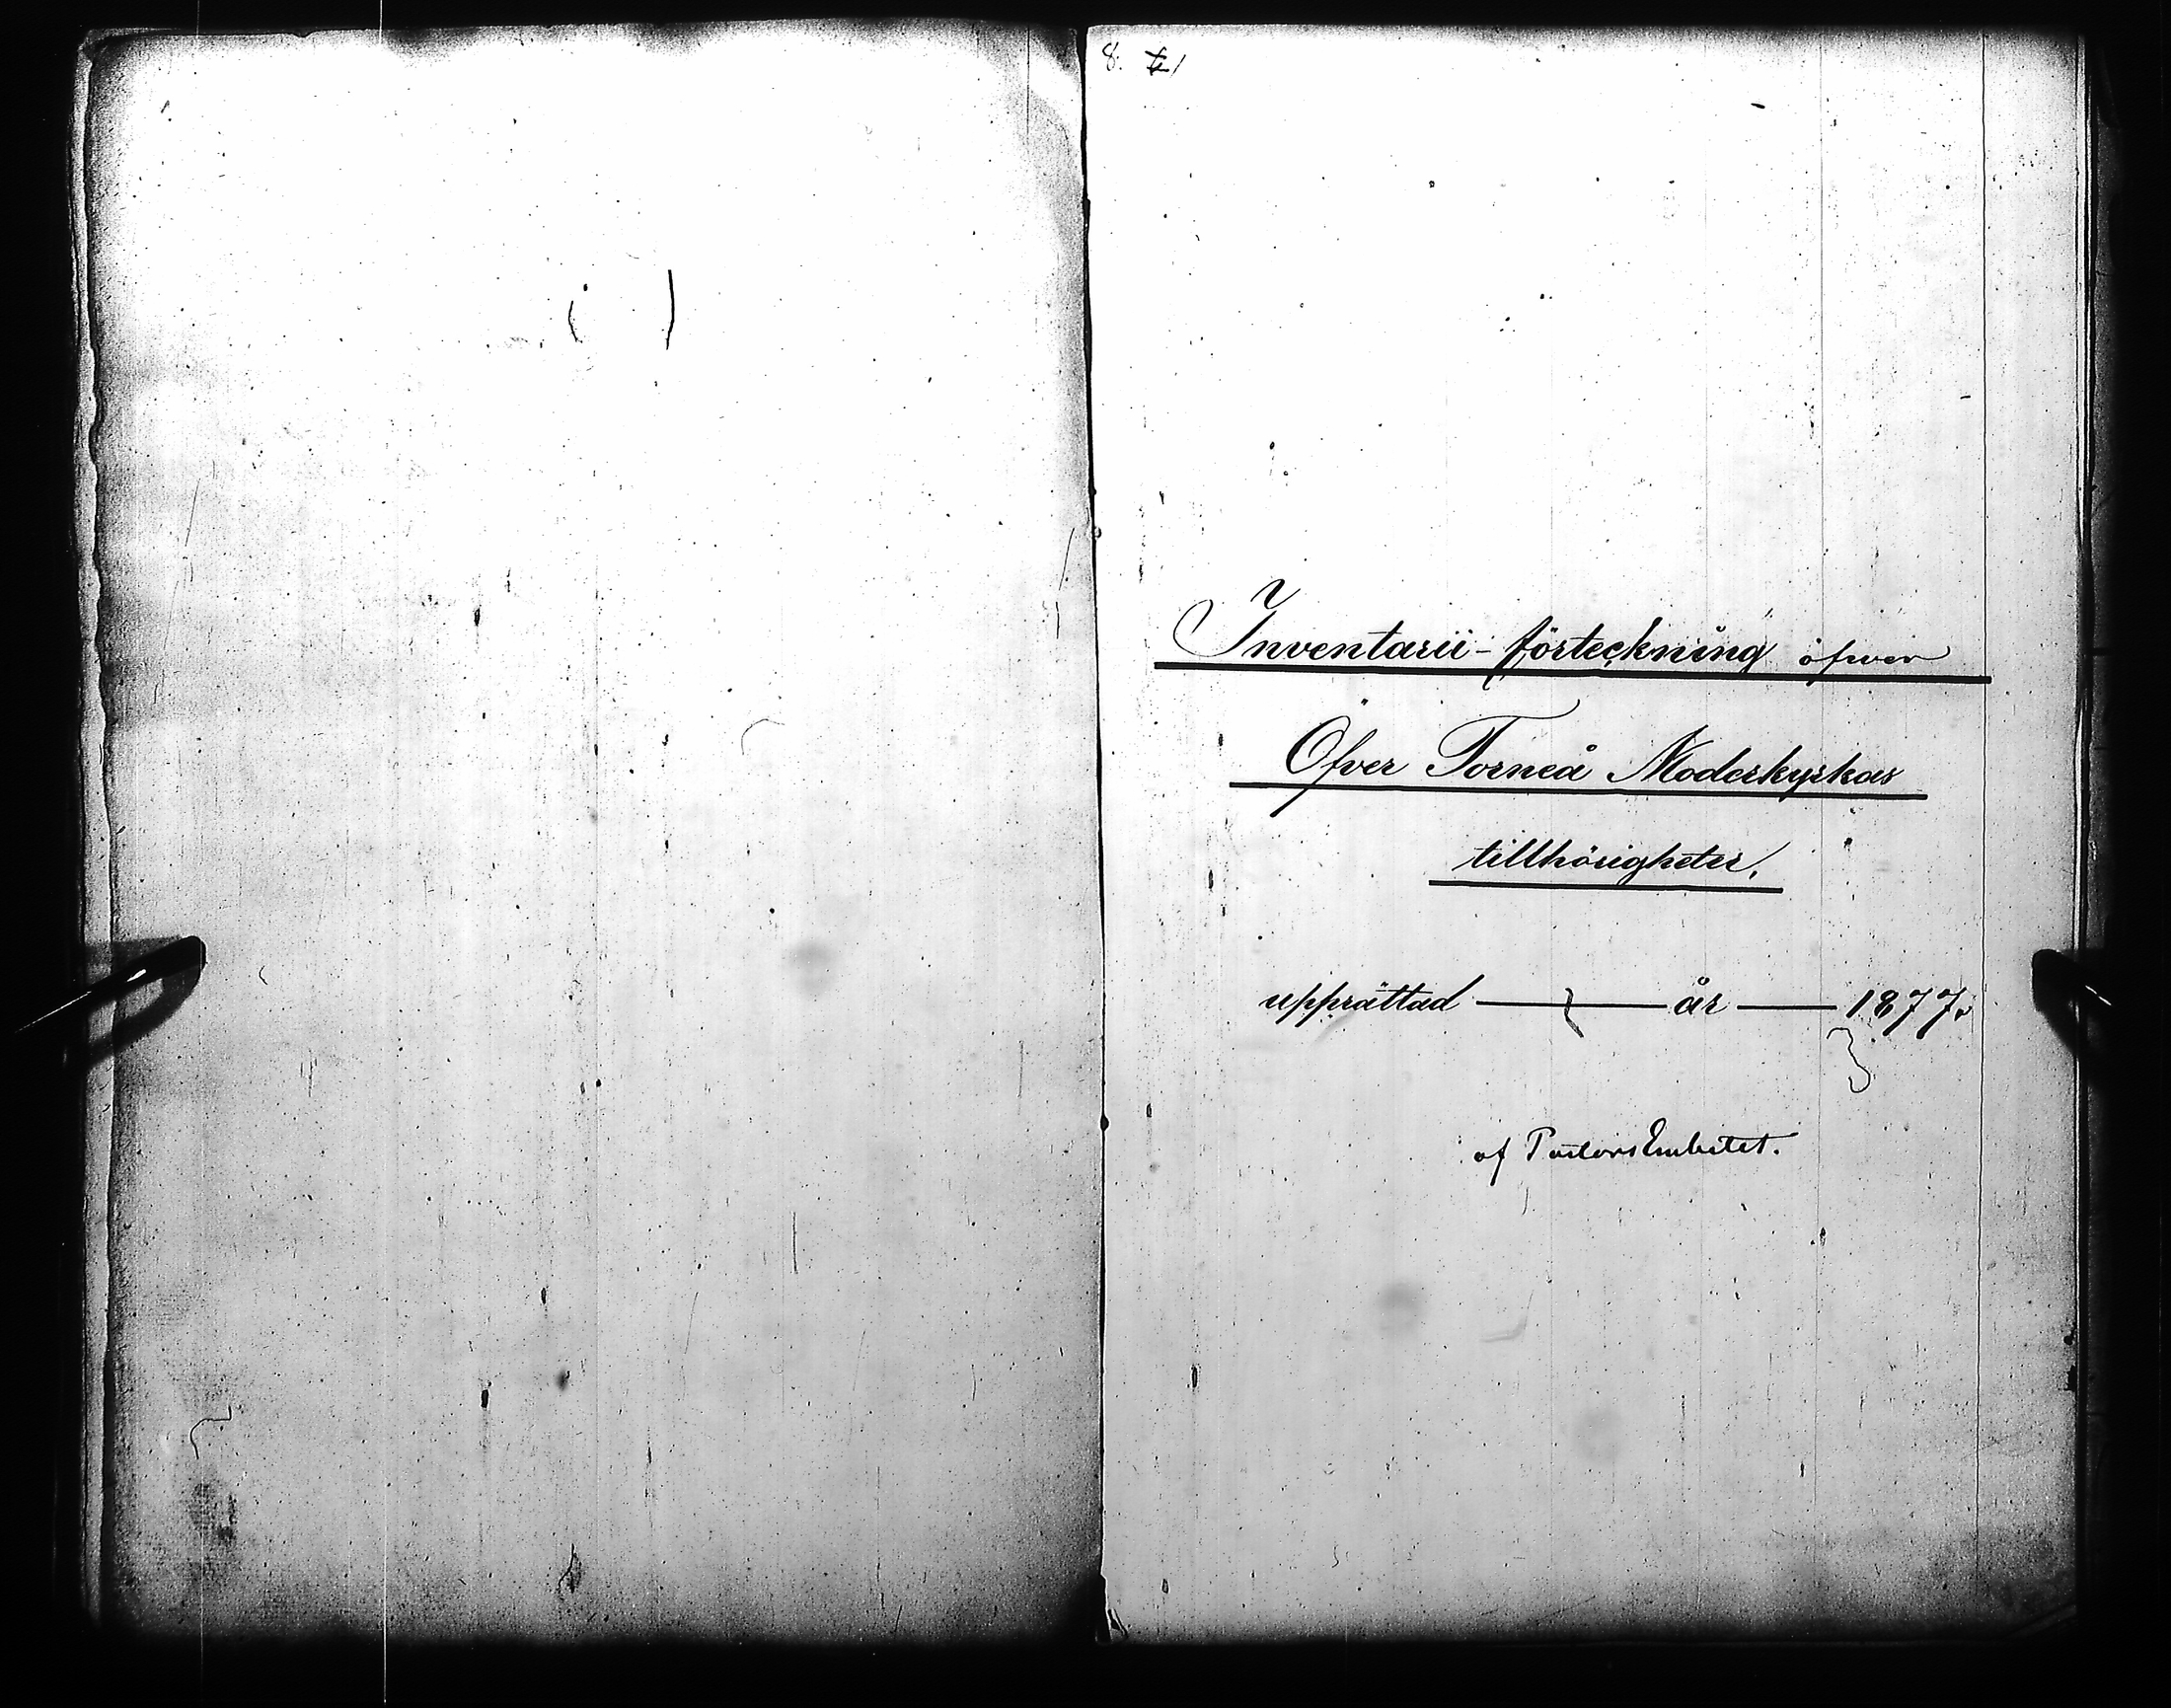 8.
Inventarii-förteckning öfwer
Öfver Torneå Moderkyrkas
tillhörigheter,
upprättad — år — 1877.
af PastorsEmbetet.